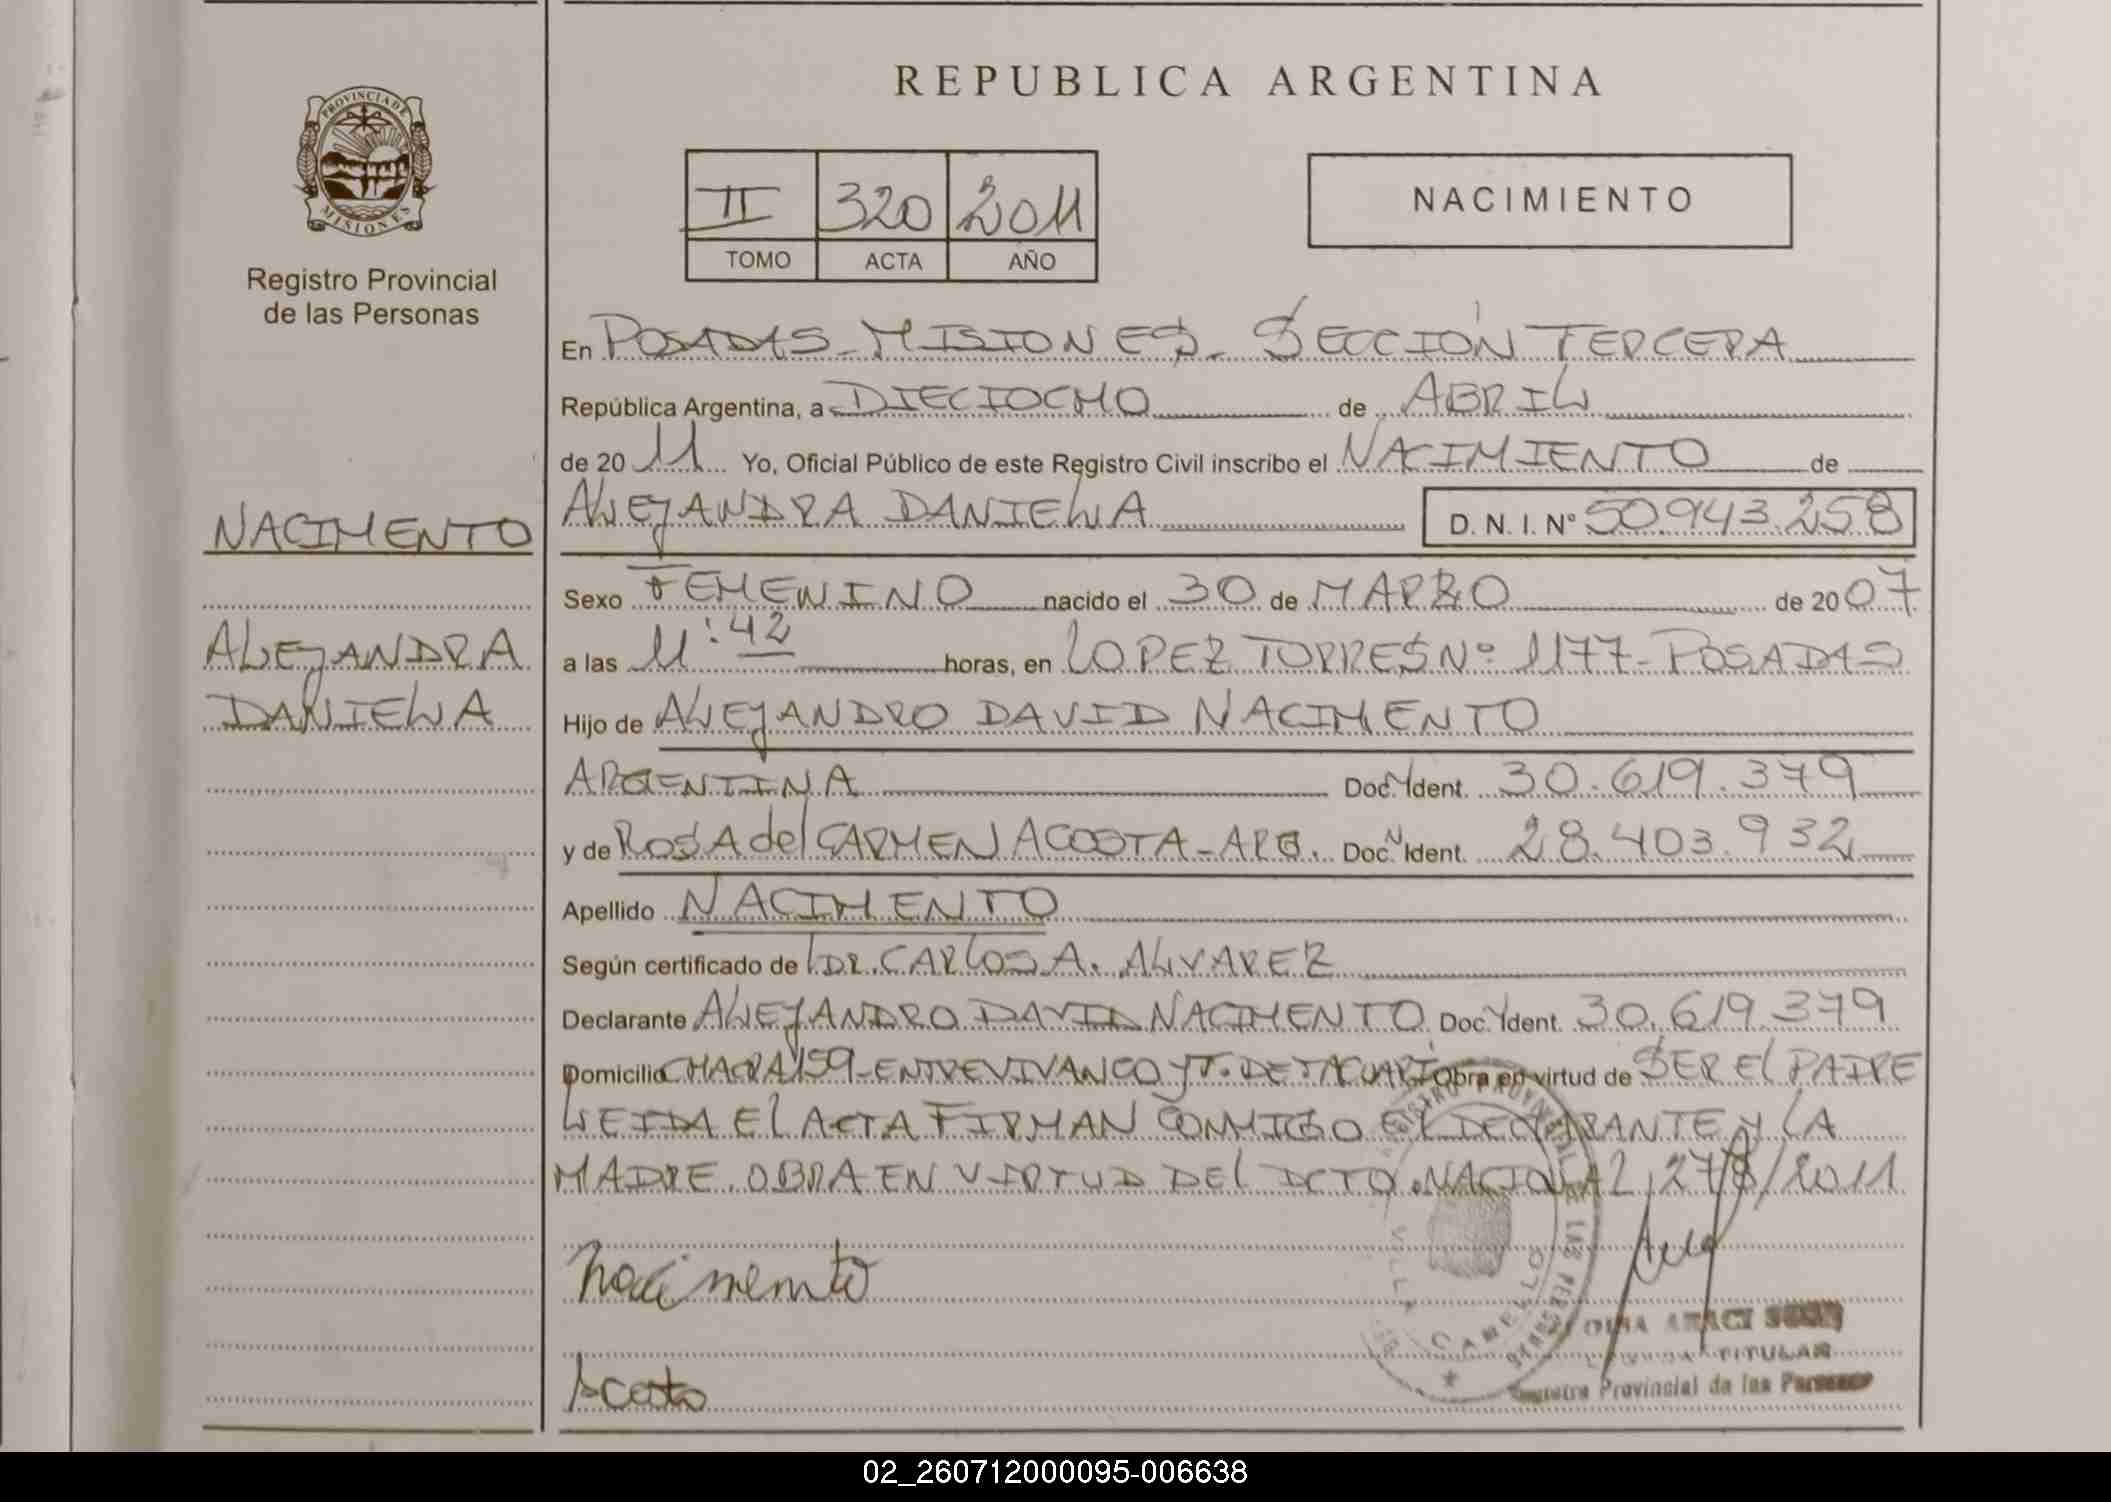 PROVINCIA DE
MISIONES
Registro Provincial
de las Personas
NACIMENTO
ALEJANDRA
DANIELA
REPUBLICA ARGENTINA
II 320 2011
TOMO ACTA AÑO
NACIMIENTO
En POSADAS - MISIONES. SECCIÓN TERCERA
República Argentina, a DIECIOCHO de ABRIL
de 20 11 Yo, Oficial Público de este Registro Civil inscribo el NACIMIENTO de
ALEJANDRA DANIELA D. N. I. Nº 50.943.258
Sexo FEMENINO nacido el 30 de MARZO de 20 07
a las 11:42 horas, en LOPEZ TORRES Nº 1177 - POSADAS
Hijo de ALEJANDRO DAVID NACIMENTO
ARGENTINA Doc. Ident. 30.619.379
y de ROSA del CARMEN ACOSTA - ARG. Doc. Ident. 28.403.932
Apellido NACIMENTO
Según certificado de DR. CARLOS A. ALVAREZ
Declarante ALEJANDRO DAVID NACIMENTO Doc. Ident. 30.619.379
Domicilio CHACRA 159 - ENTRE VIVANCO y T. DE TACUARÍ Obra en virtud de SER El PADRE
LEIDA El ACTA FIRMAN CONMIGO El DECLARANTE Y LA
MADRE. OBRA EN VIRTUD DEl DCTO. NACIONAL 278/2011
Nacimento
Acosta
REGISTRO PROVINCIAL DE LAS PERSONAS
VILLA CABELLO
TITULAR
Registro Provincial de las Personas
02_260712000095-006638